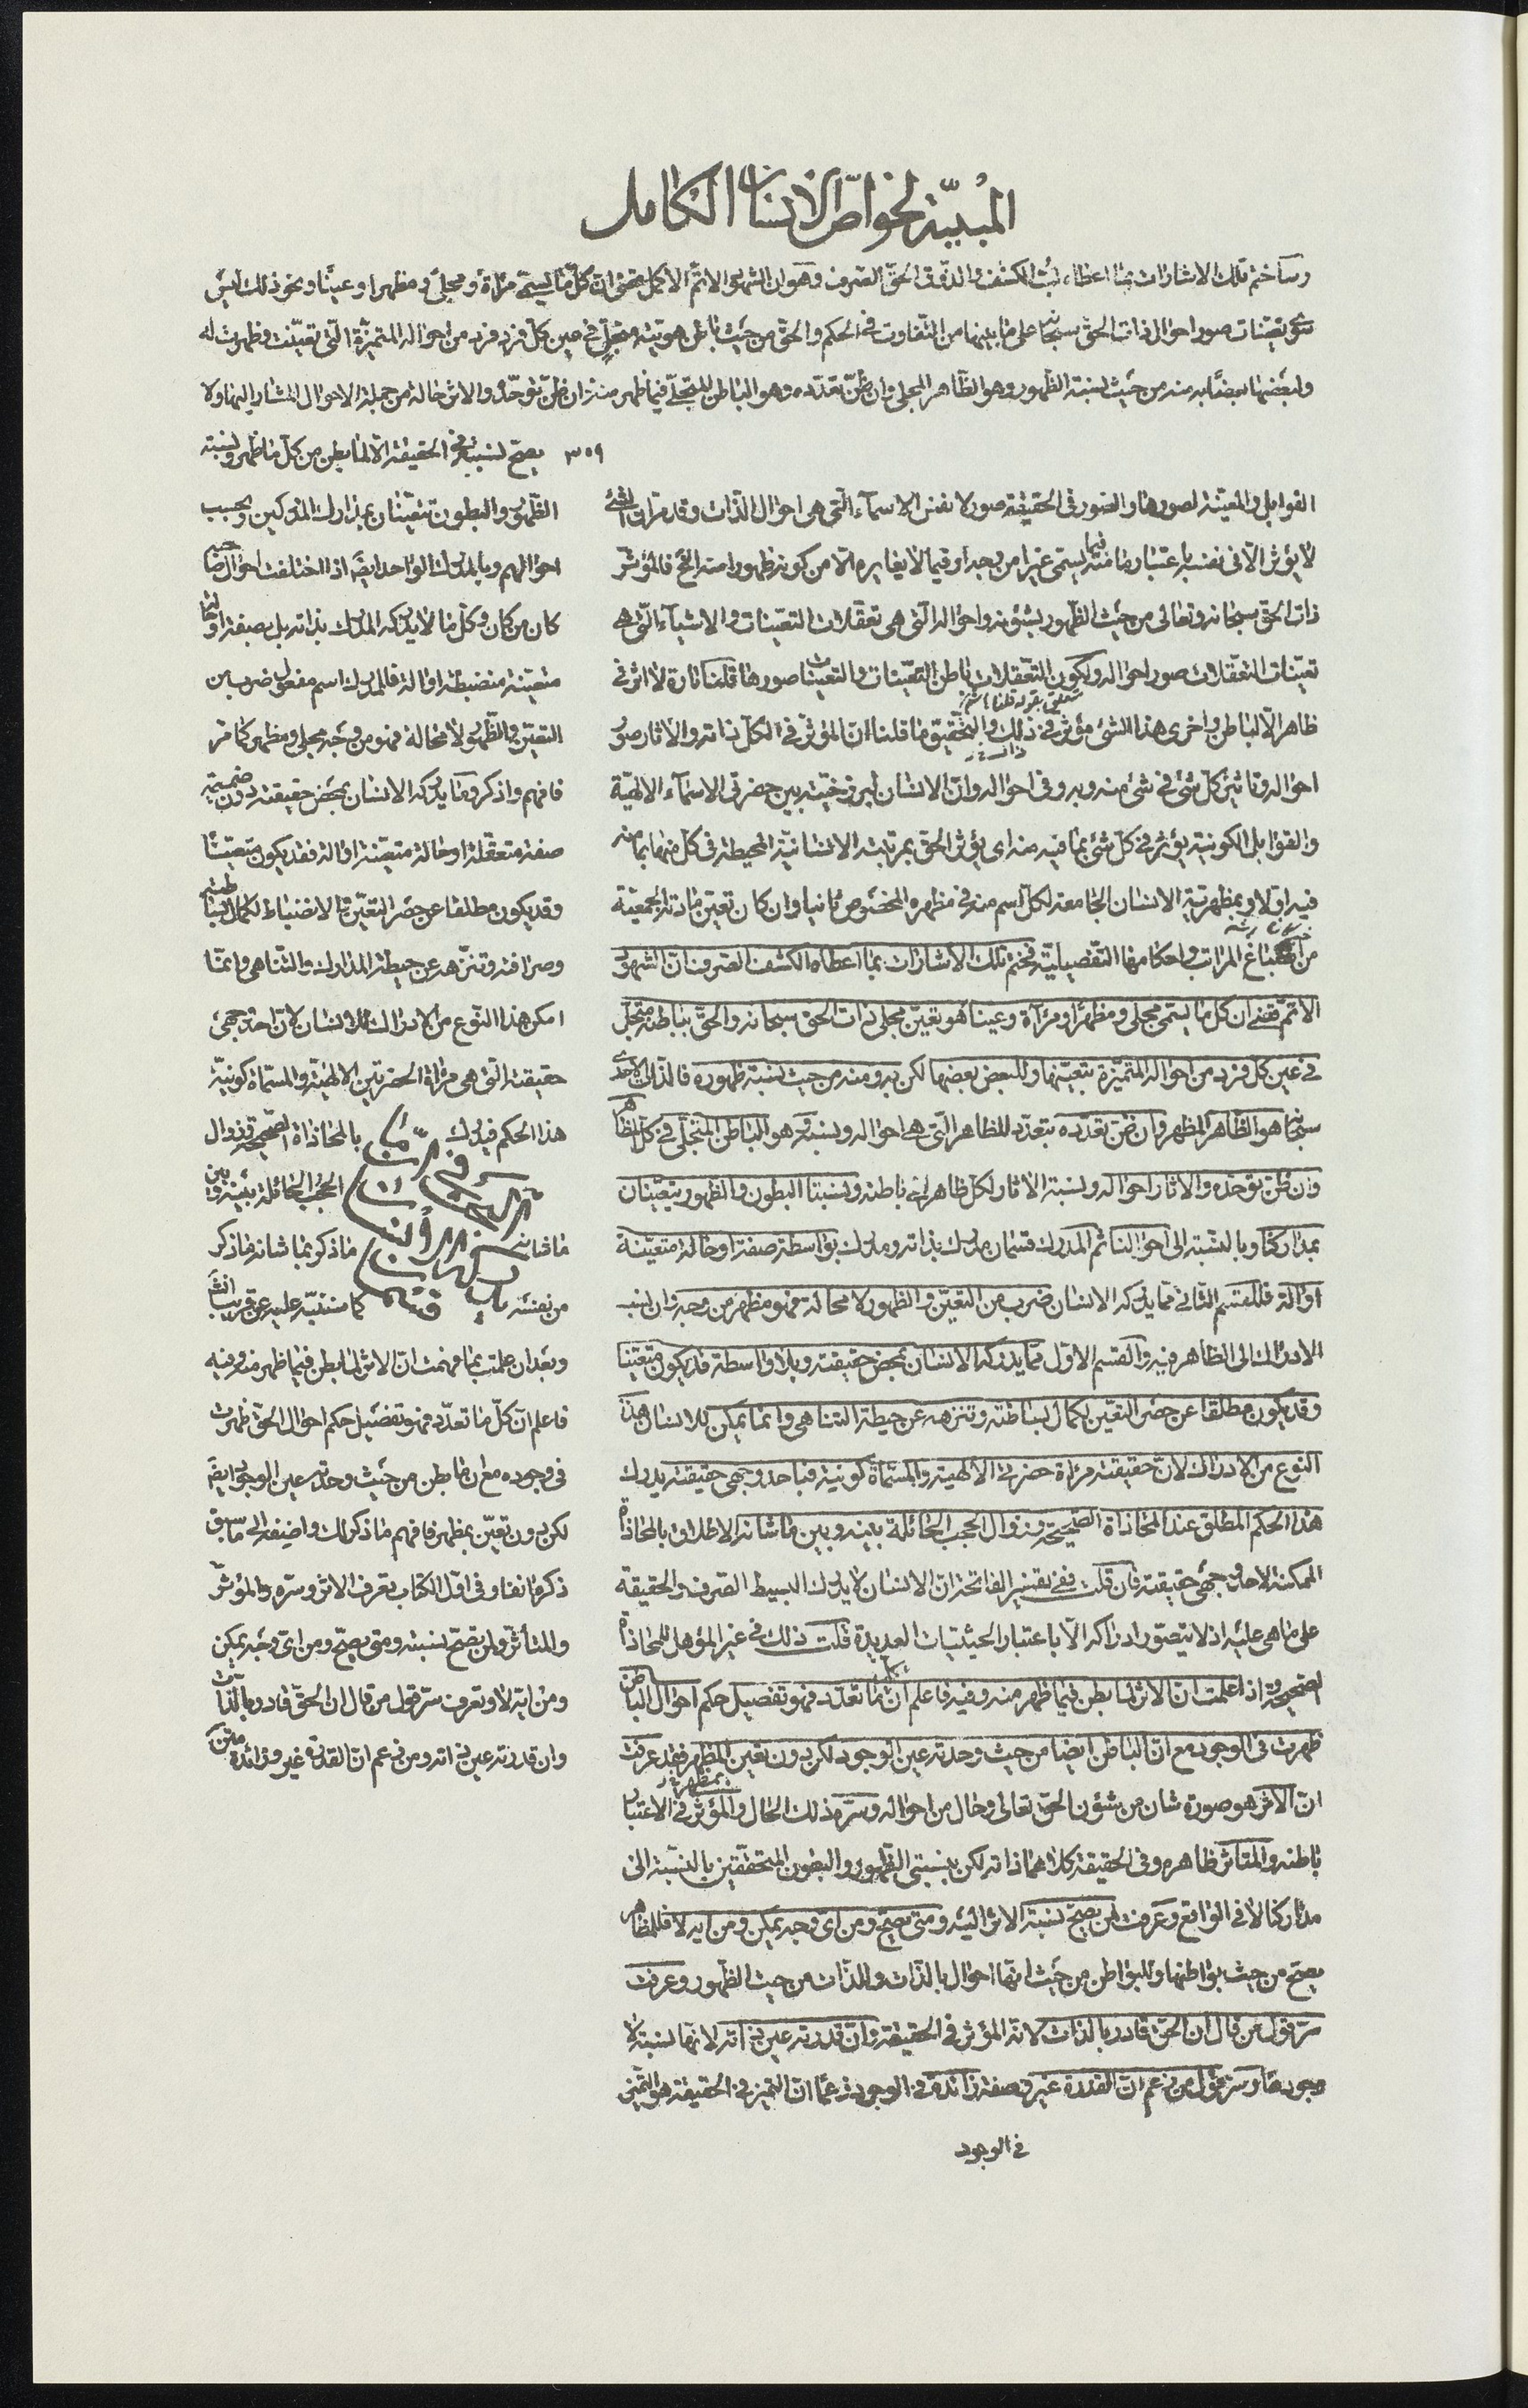 المبيّنة لخواصّ الانسان الكامل
وساختم تلك الاشارات بما اعطاه لبّ الكشف والذوق الحقّ الصرف وهو ان الشهود الاتمّ الاكمل يقضى ان كلّ ما يسمّى مرآة ومجلى ومظهرا وعينًا ونحو ذلك ليس
سوى تعينات صور احوال ذات الحق سبحانه على ما بينها من التفاوت فى الحكم والحق من حيث باطن هويته متجلّ فى عين كلّ فرد فرد من احواله المتميزة التى تعيّنت وظهرت له
ولبعضها بعضًا به منه من حيث نسبة الظهور وهو الظاهر المجلى وان ظنّ تعدّده وهو الباطن المتجلّى فيما ظهر منه وان ظنّ توحّده والاثر حالة من جملة الاحوال المشار اليها ولا
٣٥٩ يصحّ نسبته فى الحقيقة الّا لما بطن من كلّ ما ظهر ونسبة
القوابل والمعيّنة لصورها والصور فى الحقيقة صور لا نفس الاسمآء التى هى احوال الذات وقد مرّ ان الشئ
لا يؤثر الا فى نفسه باعتبار ما منه يسمى غيرا من وجه او فيما لا يغايره الا من كونه ظهورا منه الخ فالمؤثر
ذات الحق سبحانه وتعالى من حيث الظهور بشؤنه واحواله التى هى تعقلات التعينات والاشيآء التى هى
تعينات التعقلات صور احواله ولكون التعقلات باطن التعينات والتعينات صورها قلنا تارة لا اثر فى
متعلق بقوله قلنا
ظاهر الا لباطن واخرى هذا الشئ مؤثر فى ذلك والتحقيق ما قلنا ان المؤثر فى الكل ذاته والاثار صور
احواله وتاثير كل شئ فى شئ منه وبه وفى احواله وان الانسان لبرزخيته بين حضرتى الاسمآء الالهية
والقوابل الكونية يؤثر فى كل شئ بما فيه منه اى يؤثر الحق بمرتبته الانسانية المحيطة فى كل منها بما منه
فيه اولا وبمظهرية الانسان الجامعة لكل اسم منه فى مظهره المخصوص ثانيا وان كان تعين مادته الجمعية
من انصباغ المراتب واحكامها التفصيلية فختم تلك الاشارات بما اعطاه الكشف الصرف ان الشهود
الاتمّ قضى ان كل ما يسمى مجلى ومظهرا ومرآة وعينا هو تعين مجلى ذات الحق سبحانه والحق بباطنه متجلّ
فى عين كل فرد من احواله المتميّزة بتعيّنها وللبعض بعضها لكن به ومنه من حيث نسبة ظهوره فالذات الاحدى
سبحانه هو الظاهر المظهر وان ظنّ تعدّده بتعدّد للظاهر التى هى احواله ونسبه وهو الباطن المتجلّى فى كل الظاهر
وان ظنّ توحّده والاثار احواله ونسبة الاثار لكل ظاهر الى باطنه ونسبتا البطون والظهور يتعيّنان
بمداركنا وبالنسبة الى احوالنا ثم المدرك قسمان مدرك بذاته ومدرك بواسطة صفة او حالة متعيّنة
او الة فللقسم الثانى مما يدركه الانسان ضرب من التعيّن والظهور لا محالة فهو مظهر من وجه وان نسب
الادراك الى الظاهرية والقسم الاول مما يدركه الانسان بمحض حقيقته وبلا واسطة قد يكون متعيّنا
وقد يكون مطلقا عن حصر التعين لكمال بساطته وتنزهه عن حيطة التناهى وانما يمكن للانسان هذا
النوع من الادراك لان حقيقته مرآة حضرتى الالهية والمسماة كونية فباحد وجهى حقيقته يدرك
هذا الحكم المطلق عند المحاذاة الصحيحة وزوال الحجب الحائلة بينه وبين ما شانه الاطلاق بالمحاذاة
الممكنة لاحد وجهى حقيقته فان قلت ففى تفسير الفاتحة ان الانسان لا يدرك البسيط الصرف والحقيقة
على ما هى عليه اذ لا يتصور ادراكه الا باعتبار الحيثيات العديدة قلت ذلك فى غير المؤهل للمحاذاة
الصحيحة واذا علمت ان الاثر لما بطن فيما ظهر منه وفيه فاعلم ان كل ما تعدّد فهو تفصيل حكم احوال الباطن
ظهرت فى الوجود مع ان الباطن ايضا من حيث وحدته عين الوجود لكن بدون تعين المظهر فقد عرفت
بمظهر
ان الاثر هو صورة شان من شؤن الحق تعالى وحال من احواله وسرّه ذلك الحال والمؤثر فى الاعتبار
باطنه والمتاثر ظاهره وفى الحقيقة كلاهما ذاته لكن بنسبتى الظهور والبطون المتحققتين بالنسبة الى
مداركنا لا فى الواقع وعرفت لمن يصحّ نسبة الاثر اليه ومتى يصحّ ومن اى وجه يمكن ومن ايه لا فللظاهر
يصحّ من حيث بواطنها وللبواطن من حيث انها احوال بالذات وللذات من حيث الظهور وعرفت
سرّ قول من قال ان الحق قادر بالذات لانه المؤثر فى الحقيقة وان قدرته عين ذاته لانها نسبته لا
وجود لها وسرّ قول من زعم ان القدرة غير وصفة زائدة فى الوجود زعما ان التميز فى الحقيقة هو التميز
فى الوجود
الظهور والبطون تتعيّنان بمدارك المدركين وبحسب
احوالهم وبالمدرك الواحد ايضا اذا اختلفت احواله
كان من كان وكل ما لا يدركه المدرك بذاته بل بصفة او حالة
متعيّنة منضبطة او الة فللمدرك اسم مفعول ضرب من
التعيّن والظهور لا محالة فهو من وجه مجلى ومظهر كما مرّ
فافهم واذكر وما يدركه الانسان بمحض حقيقته دون ضميمة
صفة متعقلة او حالة متعيّنة او الة فقد يكون متعيّنًا
وقد يكون مطلقا عن حصر التعيّن والانضباط لكمال بساطته
وصرافته وتنزهه عن حيطة المدارك والتناهى وانما
امكن هذا النوع من الادراك للانسان لان احد وجهى
حقيقته التى هى مرآة الحضرتين الالهية والمسماة كونية
هذا الحكم فيدرك بالمحاذاة الصحيحة وزوال
الحجب الحائلة بينه وبين
ما شانه ما ذكر بما شانه ما ذكر
من نفسه كما سننبّه عليه عن قريب
وبعد ان علمت بما فهمت ان الاثر لما بطن فيما ظهر منه وفيه
فاعلم ان كلّ ما تعدّد فهو تفصيل حكم احوال الحق ظهرت
فى وجوده مع ان ما بطن من حيث وحدته عين الوجود ايضا
لكن بدون تعيّن بمظهر فافهم ما ذكر لك واضفه الى ما سبق
ذكره انفا وفى اوّل الكتاب تعرف الاثر وسرّه والمؤثر
والمتأثر ولمن تصحّ نسبته ومتى يصحّ ومن اى وجه يمكن
ومن ايه لا وتعرف سرّ قول من قال ان الحقّ قادر بالذات
وان قدرته عين ذاته ومن زعم ان القدرة غير وزائدة
متن